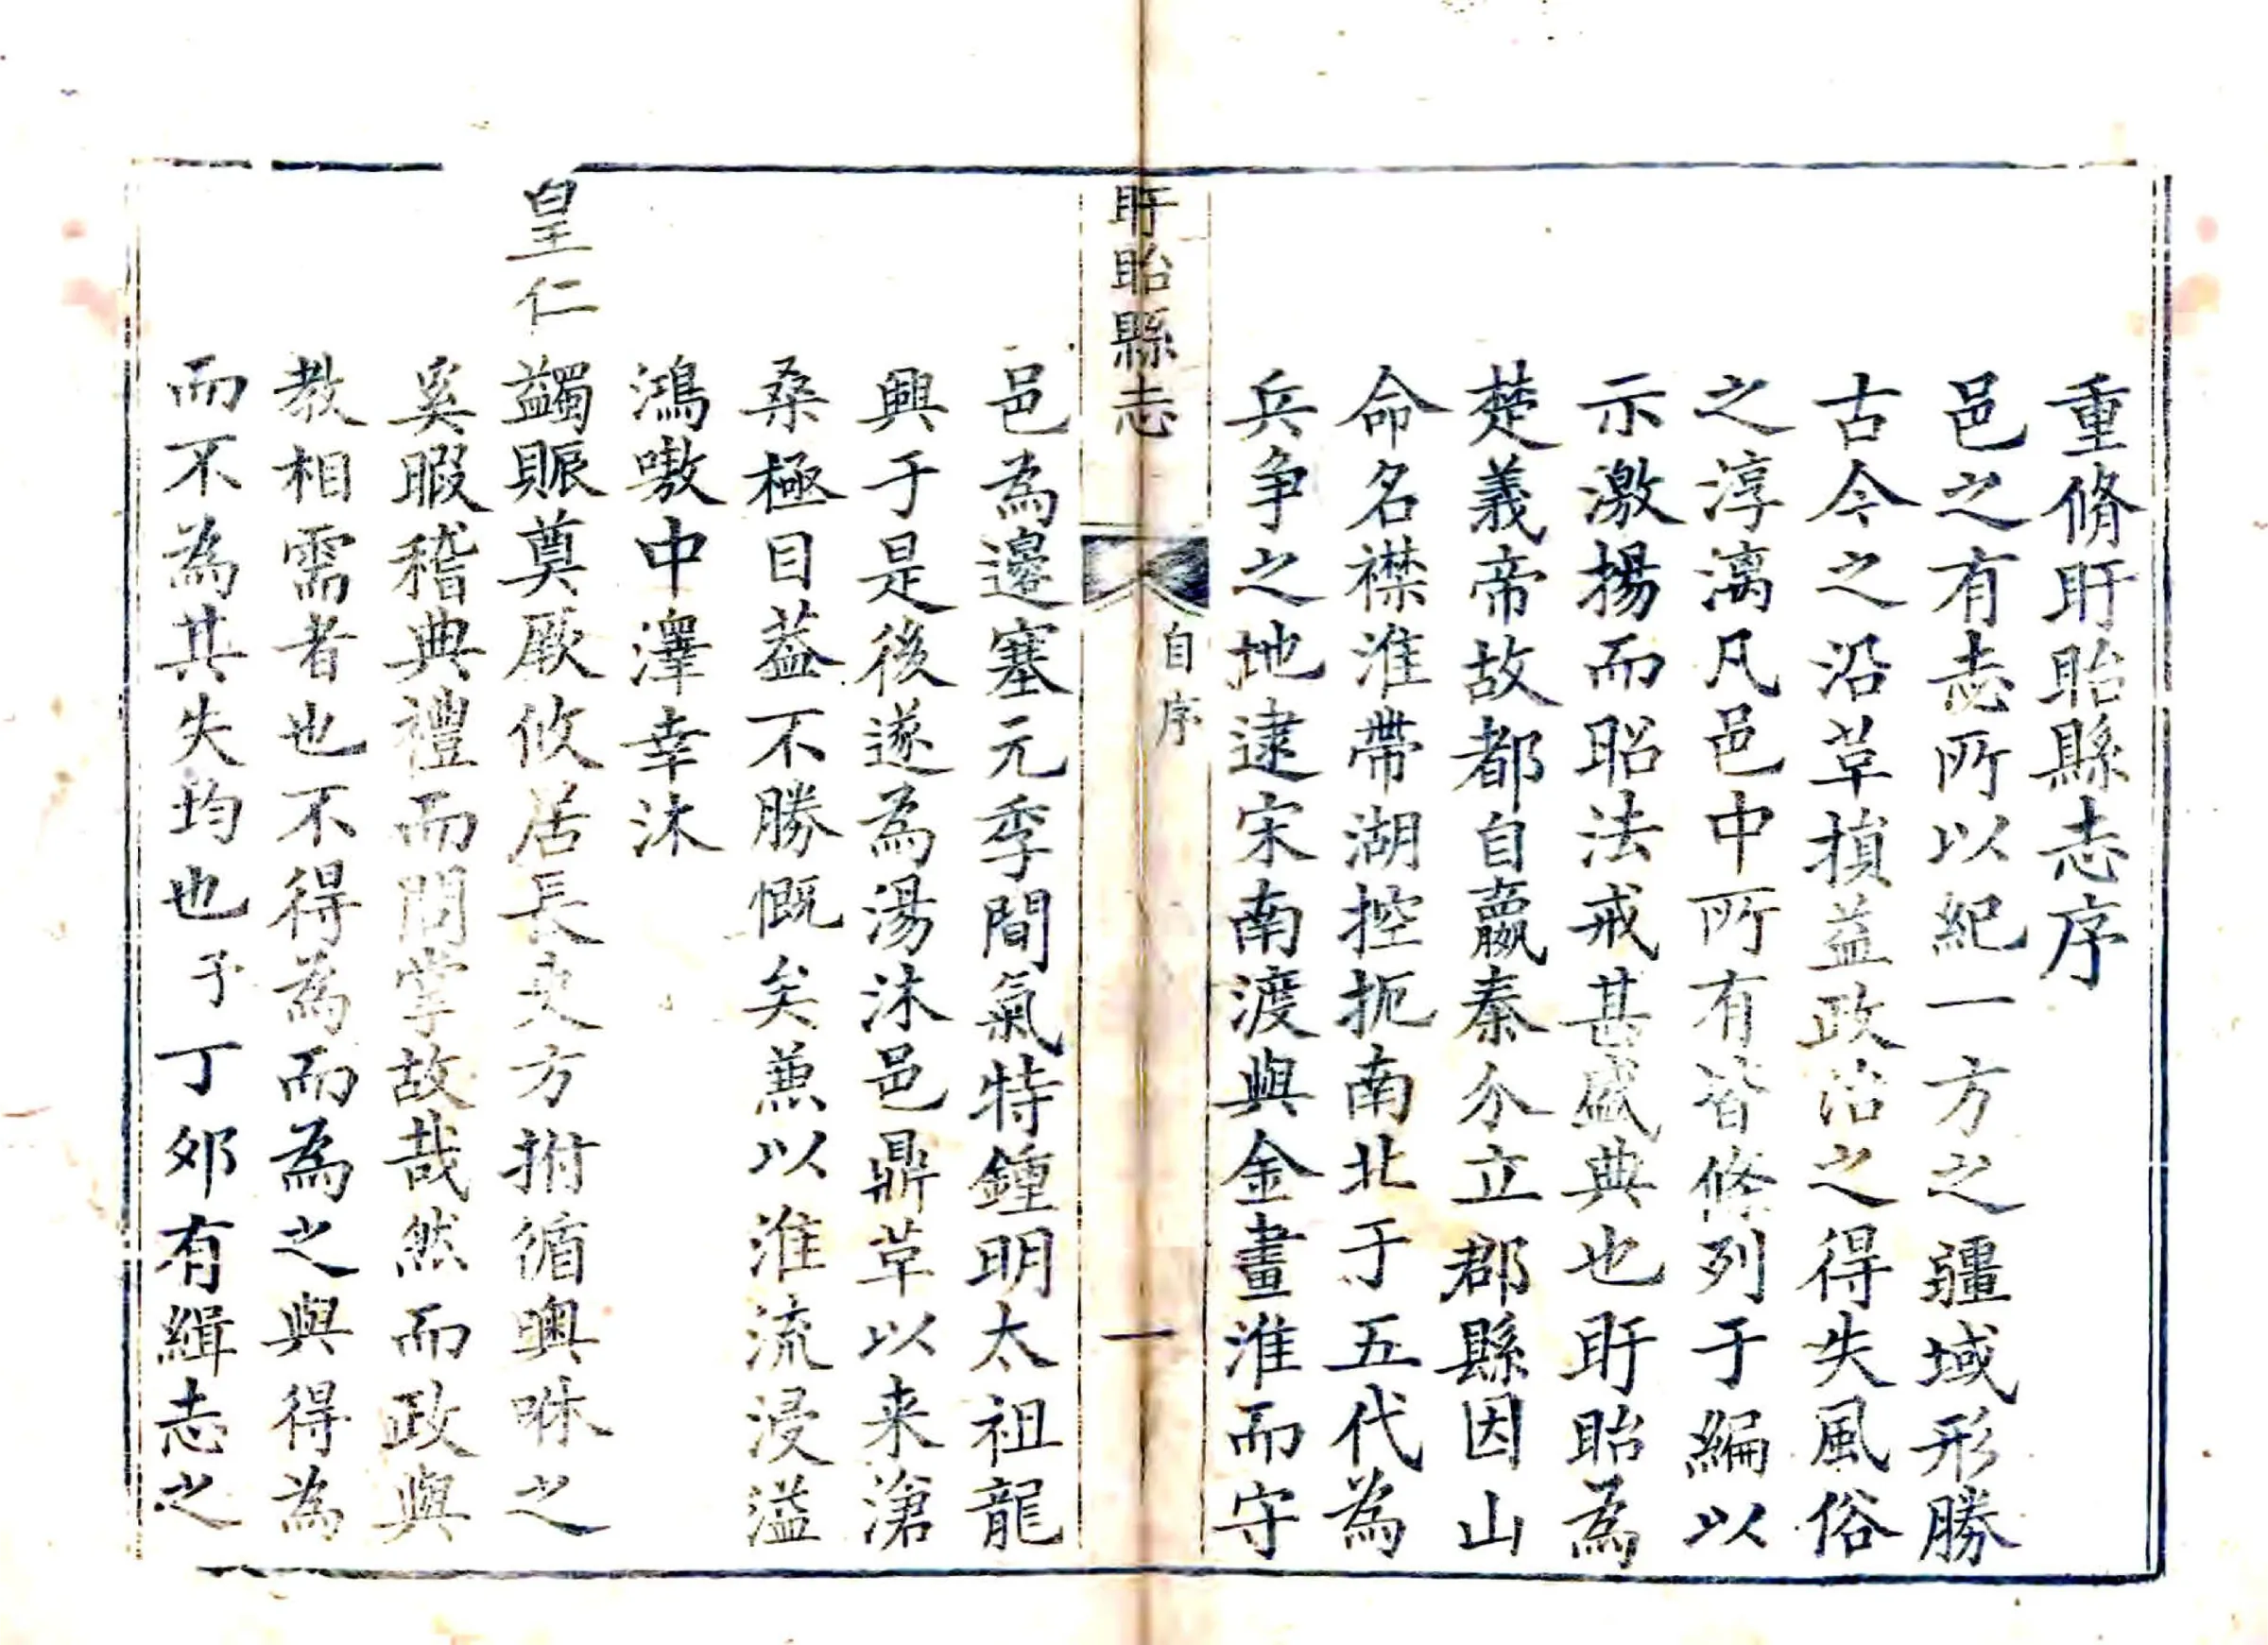 重脩盱眙縣志序
邑之有志所以紀一方之疆域形勝
古今之沿革損益政治之得失風俗
之淳漓凡邑中所有皆條列于編以
示激揚而昭法戒甚盛典也盱眙為
楚義帝故都自嬴秦分立郡縣因山
命名襟淮帶湖控扼南北于五代為
兵争之地逮宋南渡與金畫淮而守
盱眙縣志
自序
一
邑為邊塞元季間氣特鍾明太祖龍
興于是後遂為湯沐邑鼎革以来滄
桑極目葢不勝慨矣蕙以淮流浸溢
鴻嗷中澤幸沐
皇仁蠲賑奠厥攸居長吏方拊循噢咻之
奚暇稽典禮而問掌故哉然而政與
教相需者也不得為而為之與得為
而不為其失均也予丁夘有緝志之